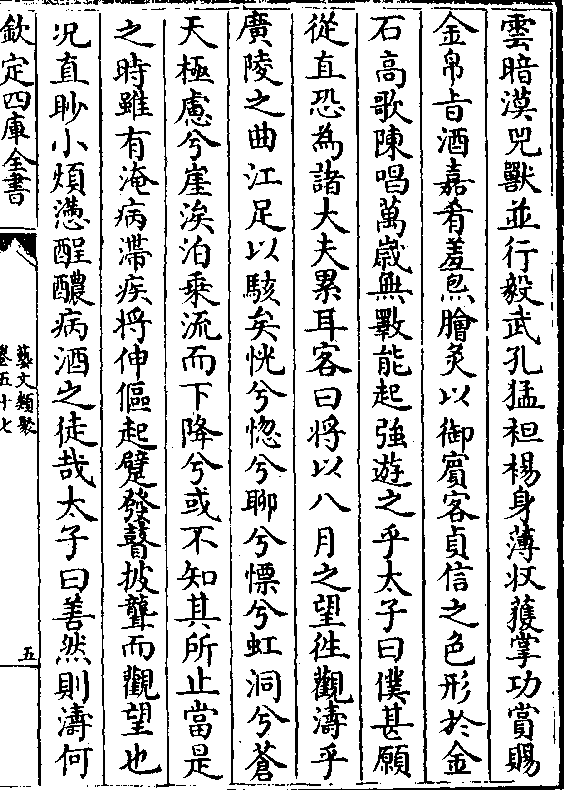 雲暗漠兕獸並行毅武孔猛袒裼身薄收獲掌功賞賜
金帛旨酒嘉肴羞炰膾炙以御賓客貞信之色形於金
石高歌陳唱萬歲無斁能起強遊之乎太子曰僕甚願
從直恐為諸大夫累耳客曰將以八月之望徃觀濤乎
廣陵之曲江足以駭矣恍兮惚兮聊兮慓兮虹洞兮蒼
天極慮兮崖涘泊乗流而下降兮或不知其所止當是
之時雖有淹病滯疾將伸傴起躄發瞽披聾而觀望也
况直眇小煩懣酲醲病酒之徒哉太子曰善然則濤何
欽定四庫全書
藝文類聚
卷五十七
五